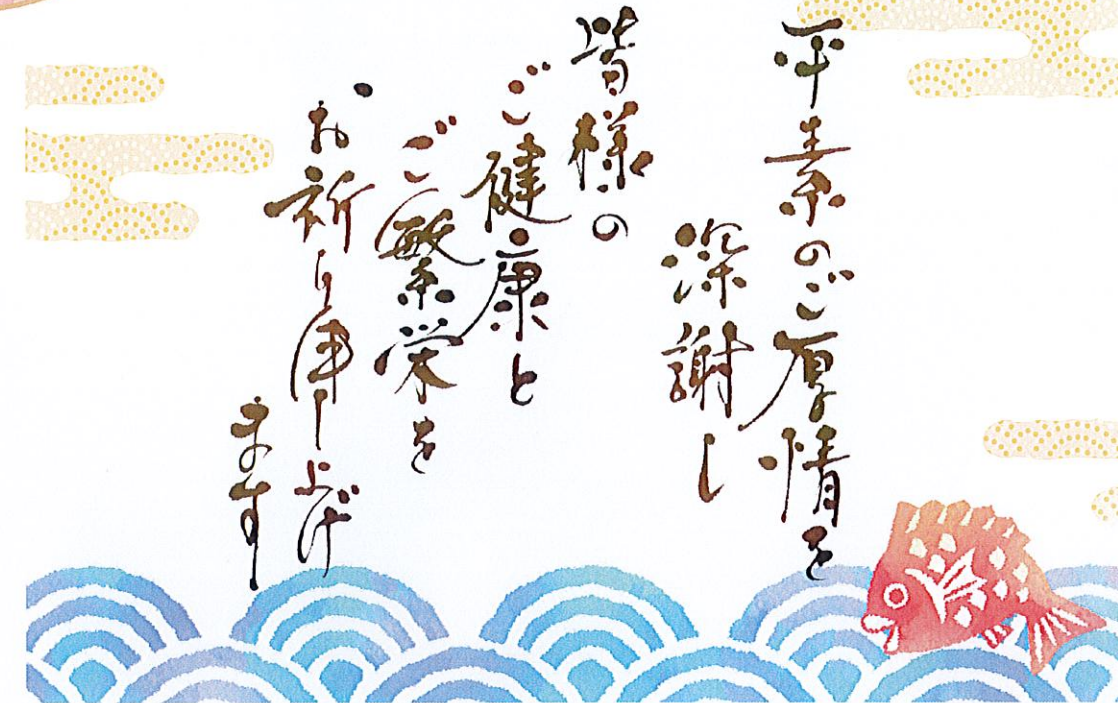 平素のご厚情を
深謝し
皆様の
ご健康と
ご繁栄を
お祈り申し上げ
ます